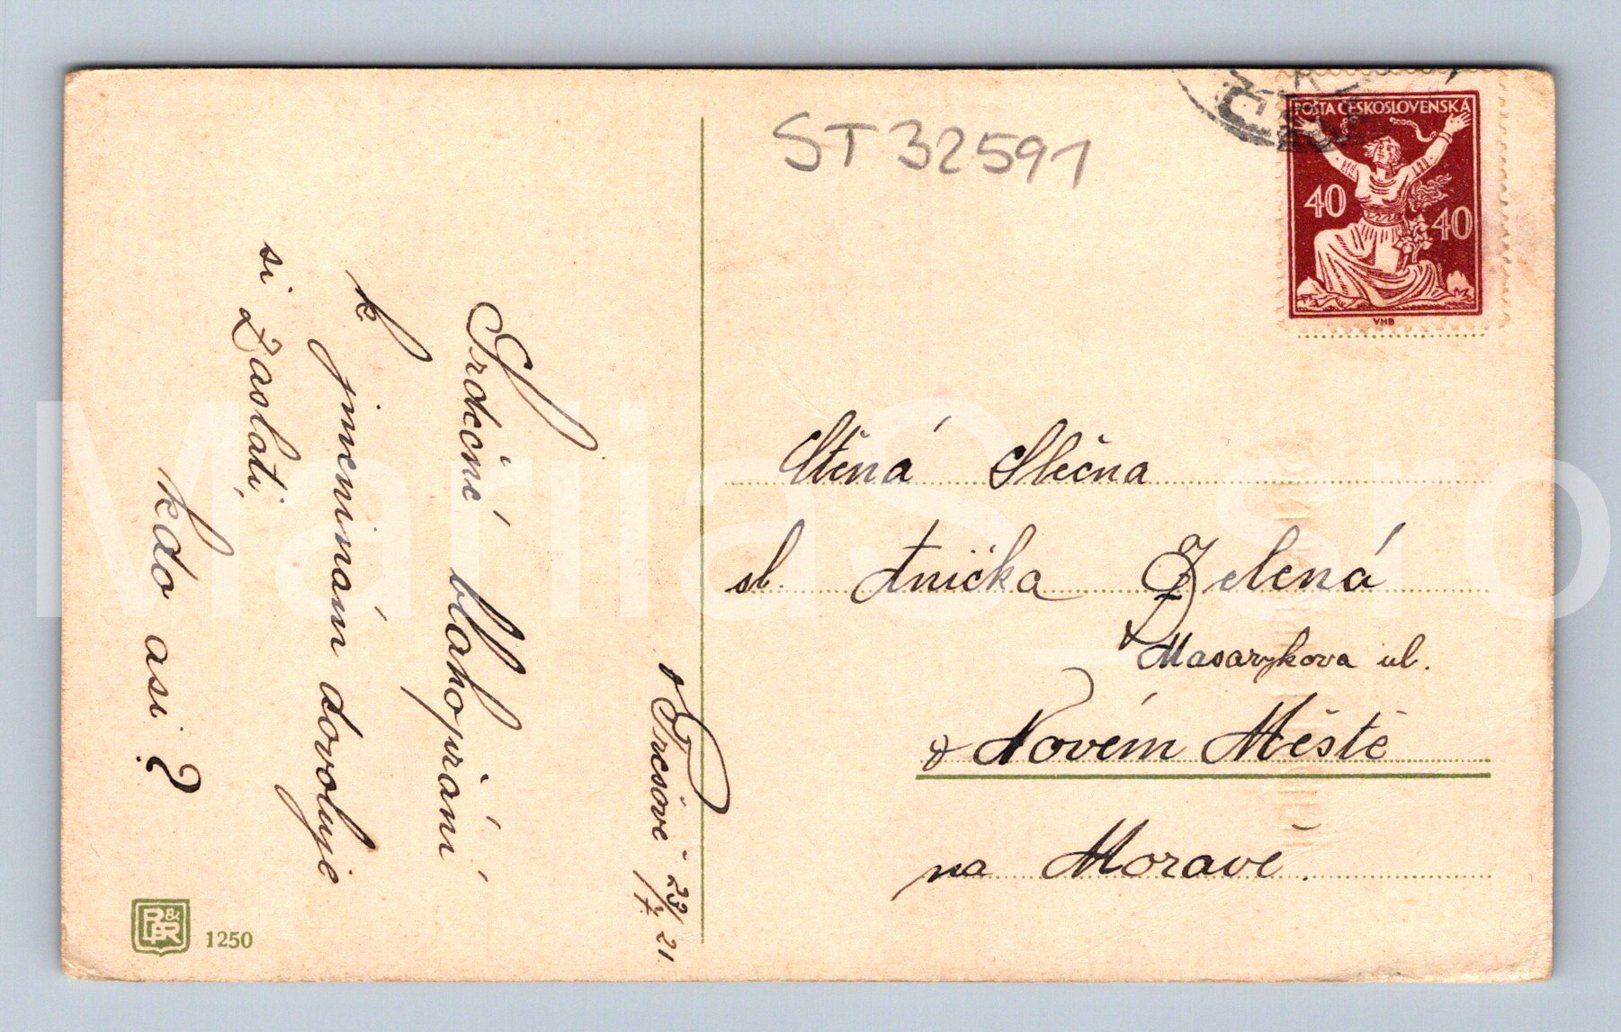 ST 32591
POŠTA ČESKOSLOVENSKÁ
40
40
VHB
v Prešově 23/7. 21.
Srdečné blahopřání
k jmeninám dovoluje
si zaslati,
kdo asi?
Ctěná Slečna
sl. Anička Zelená
Masarykova ul.
v Novém Městě
na Moravě.
P&R
1250